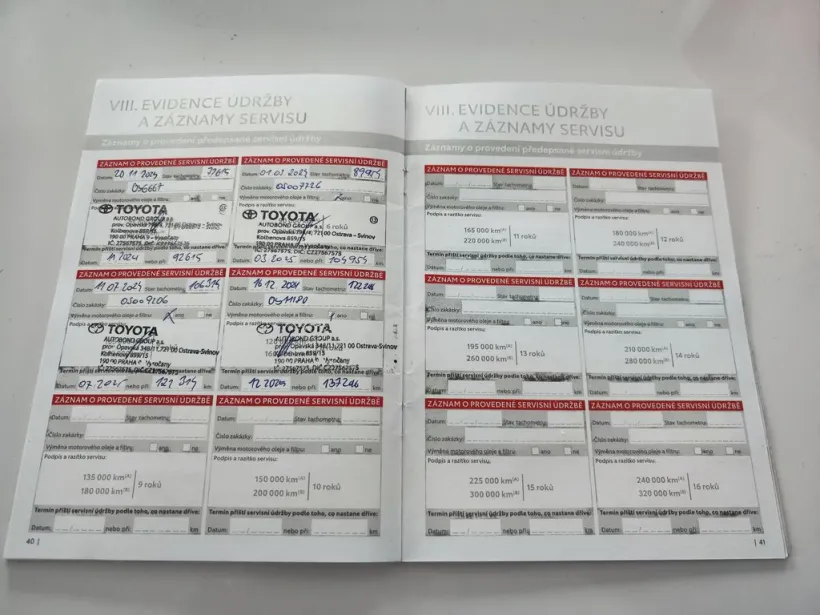 VIII. EVIDENCE ÚDRŽBY
A ZÁZNAMY SERVISU
Záznamy o provedení předepsané servisní údržby
ZÁZNAM O PROVEDENÉ SERVISNÍ ÚDRŽBĚ
Datum: Stav tachometru:
Číslo zakázky: 056667
Výměna motorového oleje a filtru: ano ne
TOYOTA
AUTOBOND GROUP a.s.
Kolbenova 859/15
190 00 PRAHA 9 – Vysočany
Termín příští servisní údržby podle toho, co nastane dříve:
Datum: 11 2024 nebo při: 92615 km
ZÁZNAM O PROVEDENÉ SERVISNÍ ÚDRŽBĚ
Datum: Stav tachometru:
Číslo zakázky: 05007726
Výměna motorového oleje a filtru: ano ne
Podpis a razítko servisu:
TOYOTA
6 roků
AUTOBOND GROUP a.s.
Kolbenova 859/15
190 00 PRAHA 9 – Vysočany
IČ: 27567575, DIČ: CZ27567575
Termín příští servisní údržby podle toho, co nastane dříve:
Datum: 03 2025 nebo při: 104954 km
ZÁZNAM O PROVEDENÉ SERVISNÍ ÚDRŽBĚ
Datum: 11.07.2024 Stav tachometru: 106314
Číslo zakázky: 05009206
Výměna motorového oleje a filtru: ano ne
Podpis a razítko servisu:
TOYOTA
AUTOBOND GROUP a.s.
prov. Opavská 346/11, 721 00 Ostrava-Svinov
Kolbenova 859/15
190 00 PRAHA 9 Vysočany
Termín příští servisní údržby podle toho, co nastane dříve:
Datum: 07.2025 nebo při: 121 314 km
ZÁZNAM O PROVEDENÉ SERVISNÍ ÚDRŽBĚ
Datum: 16 12. 2024 Stav tachometru: 122246
Číslo zakázky:
Výměna motorového oleje a filtru: ano ne
Podpis a razítko servisu:
TOYOTA
AUTOBOND GROUP a.s.
prov. Opavská 346/11, 721 00 Ostrava-Svinov
Kolbenova 859/15
Termín příští servisní údržby podle toho, co nastane dříve:
Datum: 12 2025 nebo při: 137246 km
ZÁZNAM O PROVEDENÉ SERVISNÍ ÚDRŽBĚ
Datum: Stav tachometru:
Číslo zakázky:
Výměna motorového oleje a filtru: ano ne
Podpis a razítko servisu:
135 000 km(A)
180 000 km(B)
9 roků
Termín příští servisní údržby podle toho, co nastane dříve:
Datum: nebo při: km
ZÁZNAM O PROVEDENÉ SERVISNÍ ÚDRŽBĚ
Datum: Stav tachometru:
Číslo zakázky:
Výměna motorového oleje a filtru: ano ne
Podpis a razítko servisu:
150 000 km(A)
200 000 km(B)
10 roků
Termín příští servisní údržby podle toho, co nastane dříve:
Datum: nebo při: km
40 |
VIII. EVIDENCE ÚDRŽBY
A ZÁZNAMY SERVISU
Záznamy o provedení předepsané servisní údržby
ZÁZNAM O PROVEDENÉ SERVISNÍ ÚDRŽBĚ
Datum: Stav tachometru:
Číslo zakázky:
Výměna motorového oleje a filtru: ano ne
Podpis a razítko servisu:
165 000 km(A)
220 000 km(B)
11 roků
Termín příští servisní údržby podle toho, co nastane dříve:
Datum: nebo při: km
ZÁZNAM O PROVEDENÉ SERVISNÍ ÚDRŽBĚ
Datum: Stav tachometru:
Číslo zakázky:
Výměna motorového oleje a filtru: ano ne
Podpis a razítko servisu:
180 000 km(A)
240 000 km(B)
12 roků
Termín příští servisní údržby podle toho, co nastane dříve:
Datum: nebo při: km
ZÁZNAM O PROVEDENÉ SERVISNÍ ÚDRŽBĚ
Datum: Stav tachometru:
Číslo zakázky:
Výměna motorového oleje a filtru: ano ne
Podpis a razítko servisu:
195 000 km(A)
260 000 km(B)
13 roků
Termín příští servisní údržby podle toho, co nastane dříve:
Datum: nebo při: km
ZÁZNAM O PROVEDENÉ SERVISNÍ ÚDRŽBĚ
Datum: Stav tachometru:
Číslo zakázky:
Výměna motorového oleje a filtru: ano ne
Podpis a razítko servisu:
210 000 km(A)
280 000 km(B)
14 roků
Termín příští servisní údržby podle toho, co nastane dříve:
Datum: nebo při: km
ZÁZNAM O PROVEDENÉ SERVISNÍ ÚDRŽBĚ
Datum: Stav tachometru:
Číslo zakázky:
Výměna motorového oleje a filtru: ano ne
Podpis a razítko servisu:
225 000 km(A)
300 000 km(B)
15 roků
Termín příští servisní údržby podle toho, co nastane dříve:
Datum: nebo při: km
ZÁZNAM O PROVEDENÉ SERVISNÍ ÚDRŽBĚ
Datum: Stav tachometru:
Číslo zakázky:
Výměna motorového oleje a filtru: ano ne
Podpis a razítko servisu:
240 000 km(A)
320 000 km(B)
16 roků
Termín příští servisní údržby podle toho, co nastane dříve:
Datum: nebo při: km
| 41